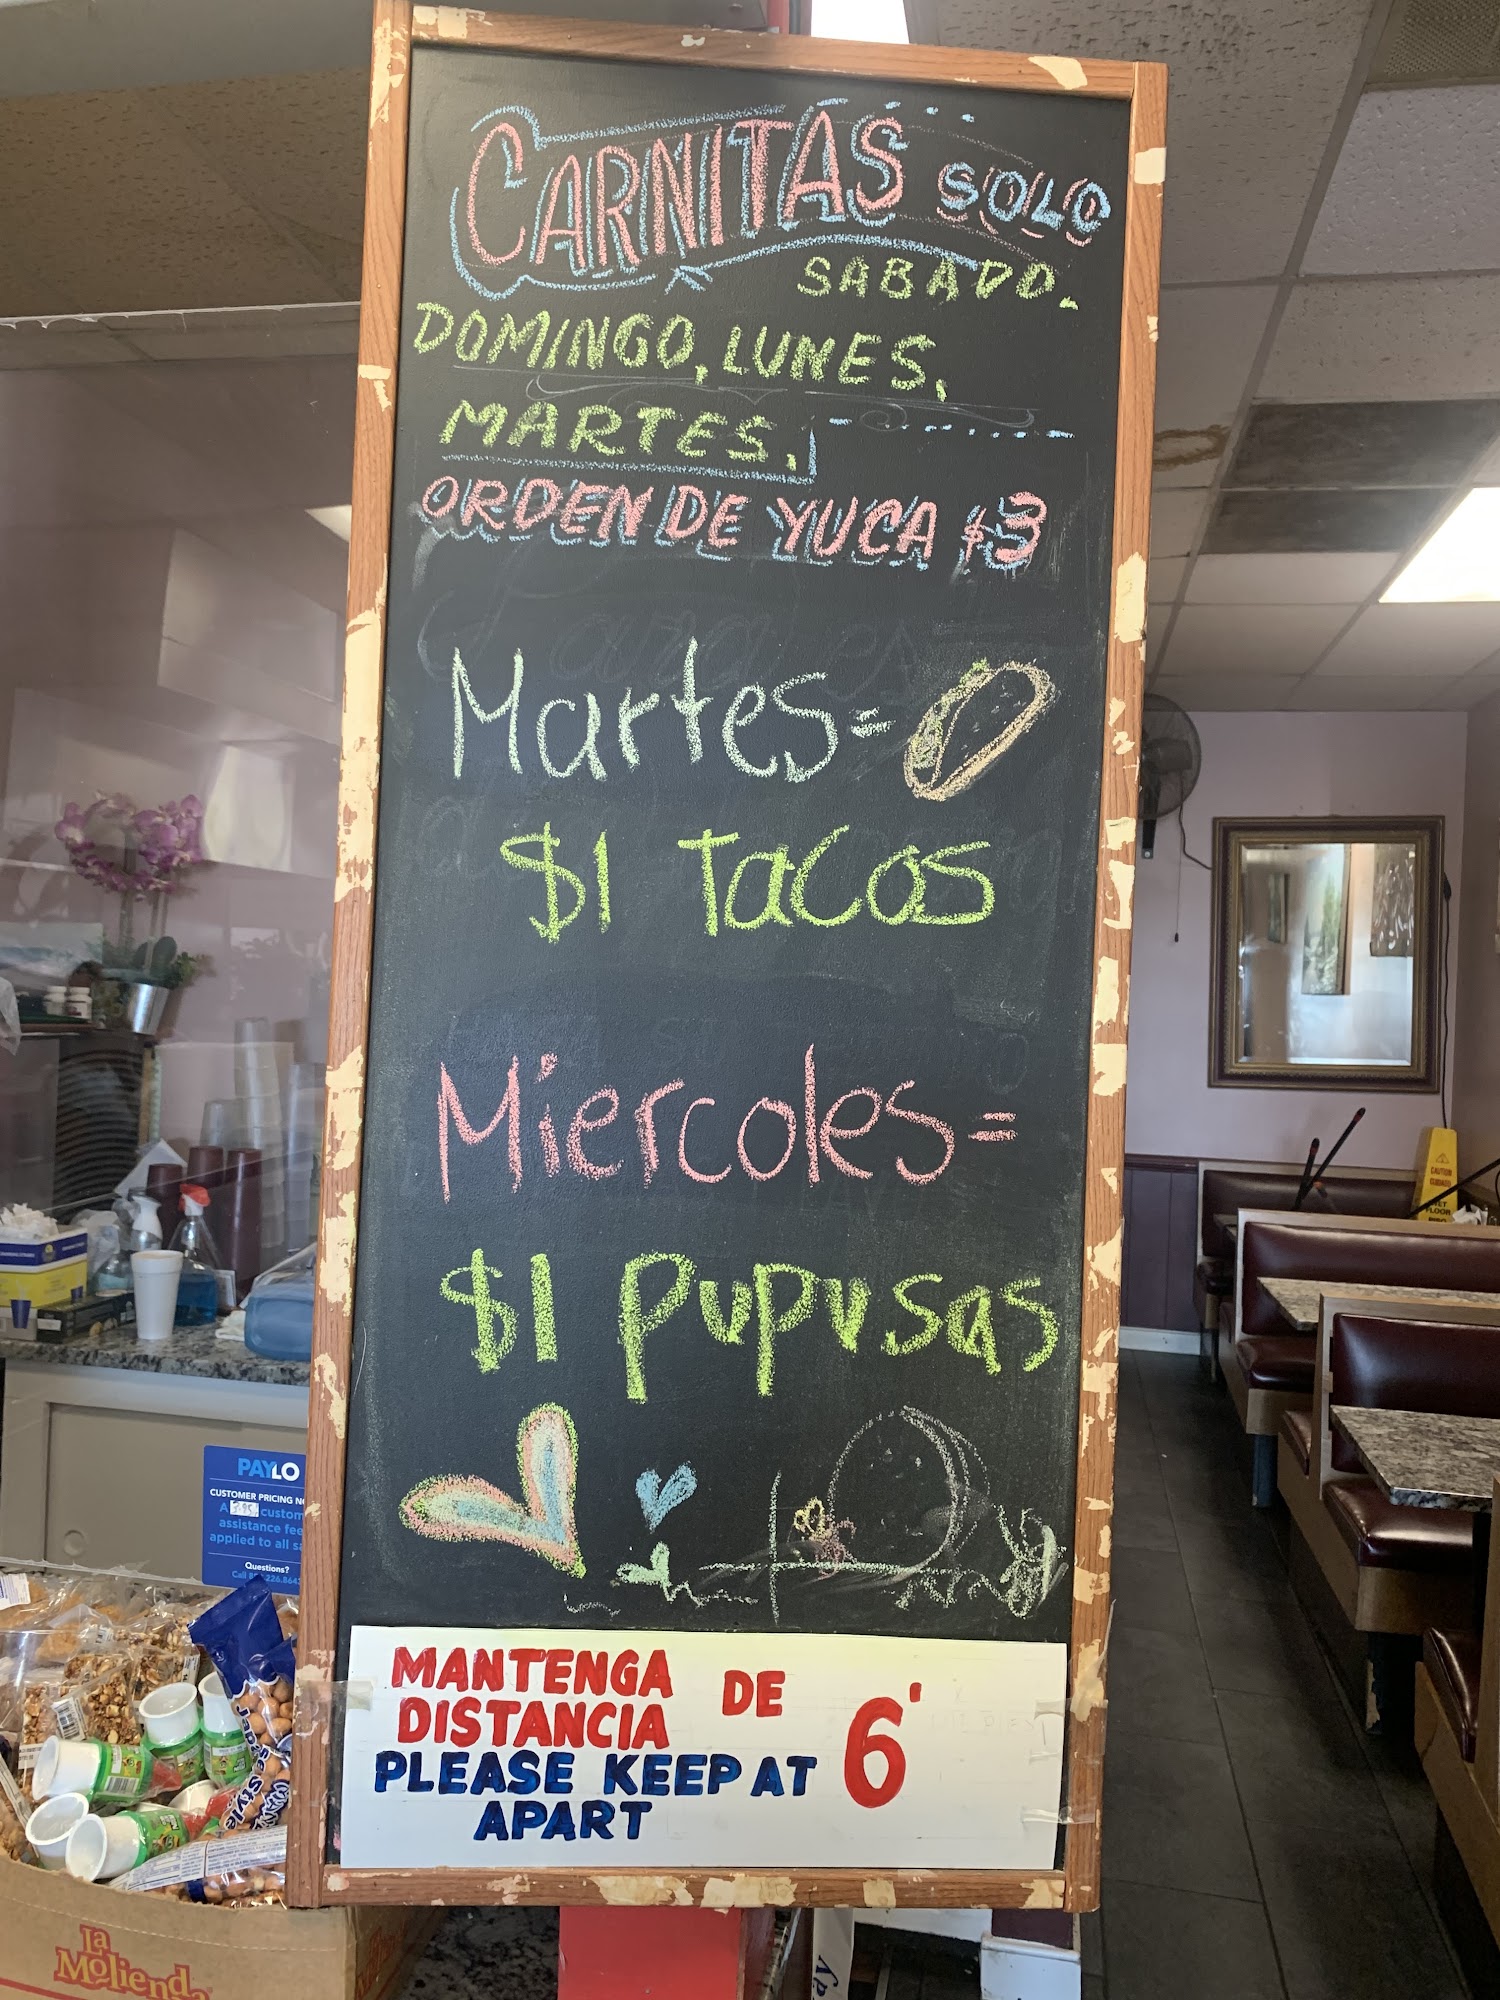 CARNITAS SOLO
SABADO.
DOMINGO, LUNES,
MARTES.
ORDEN DE YUCA $3
Martes=
$1 Tacos
Miercoles=
$1 pupusas
MANTENGA DE
DISTANCIA
6'
PLEASE KEEP AT
APART
PAYLO
CUSTOMER PRICING
A 3.95
assistance fee
applied to all
Questions?
Call
CAUTION
WET
FLOOR
La
Moliend
Style